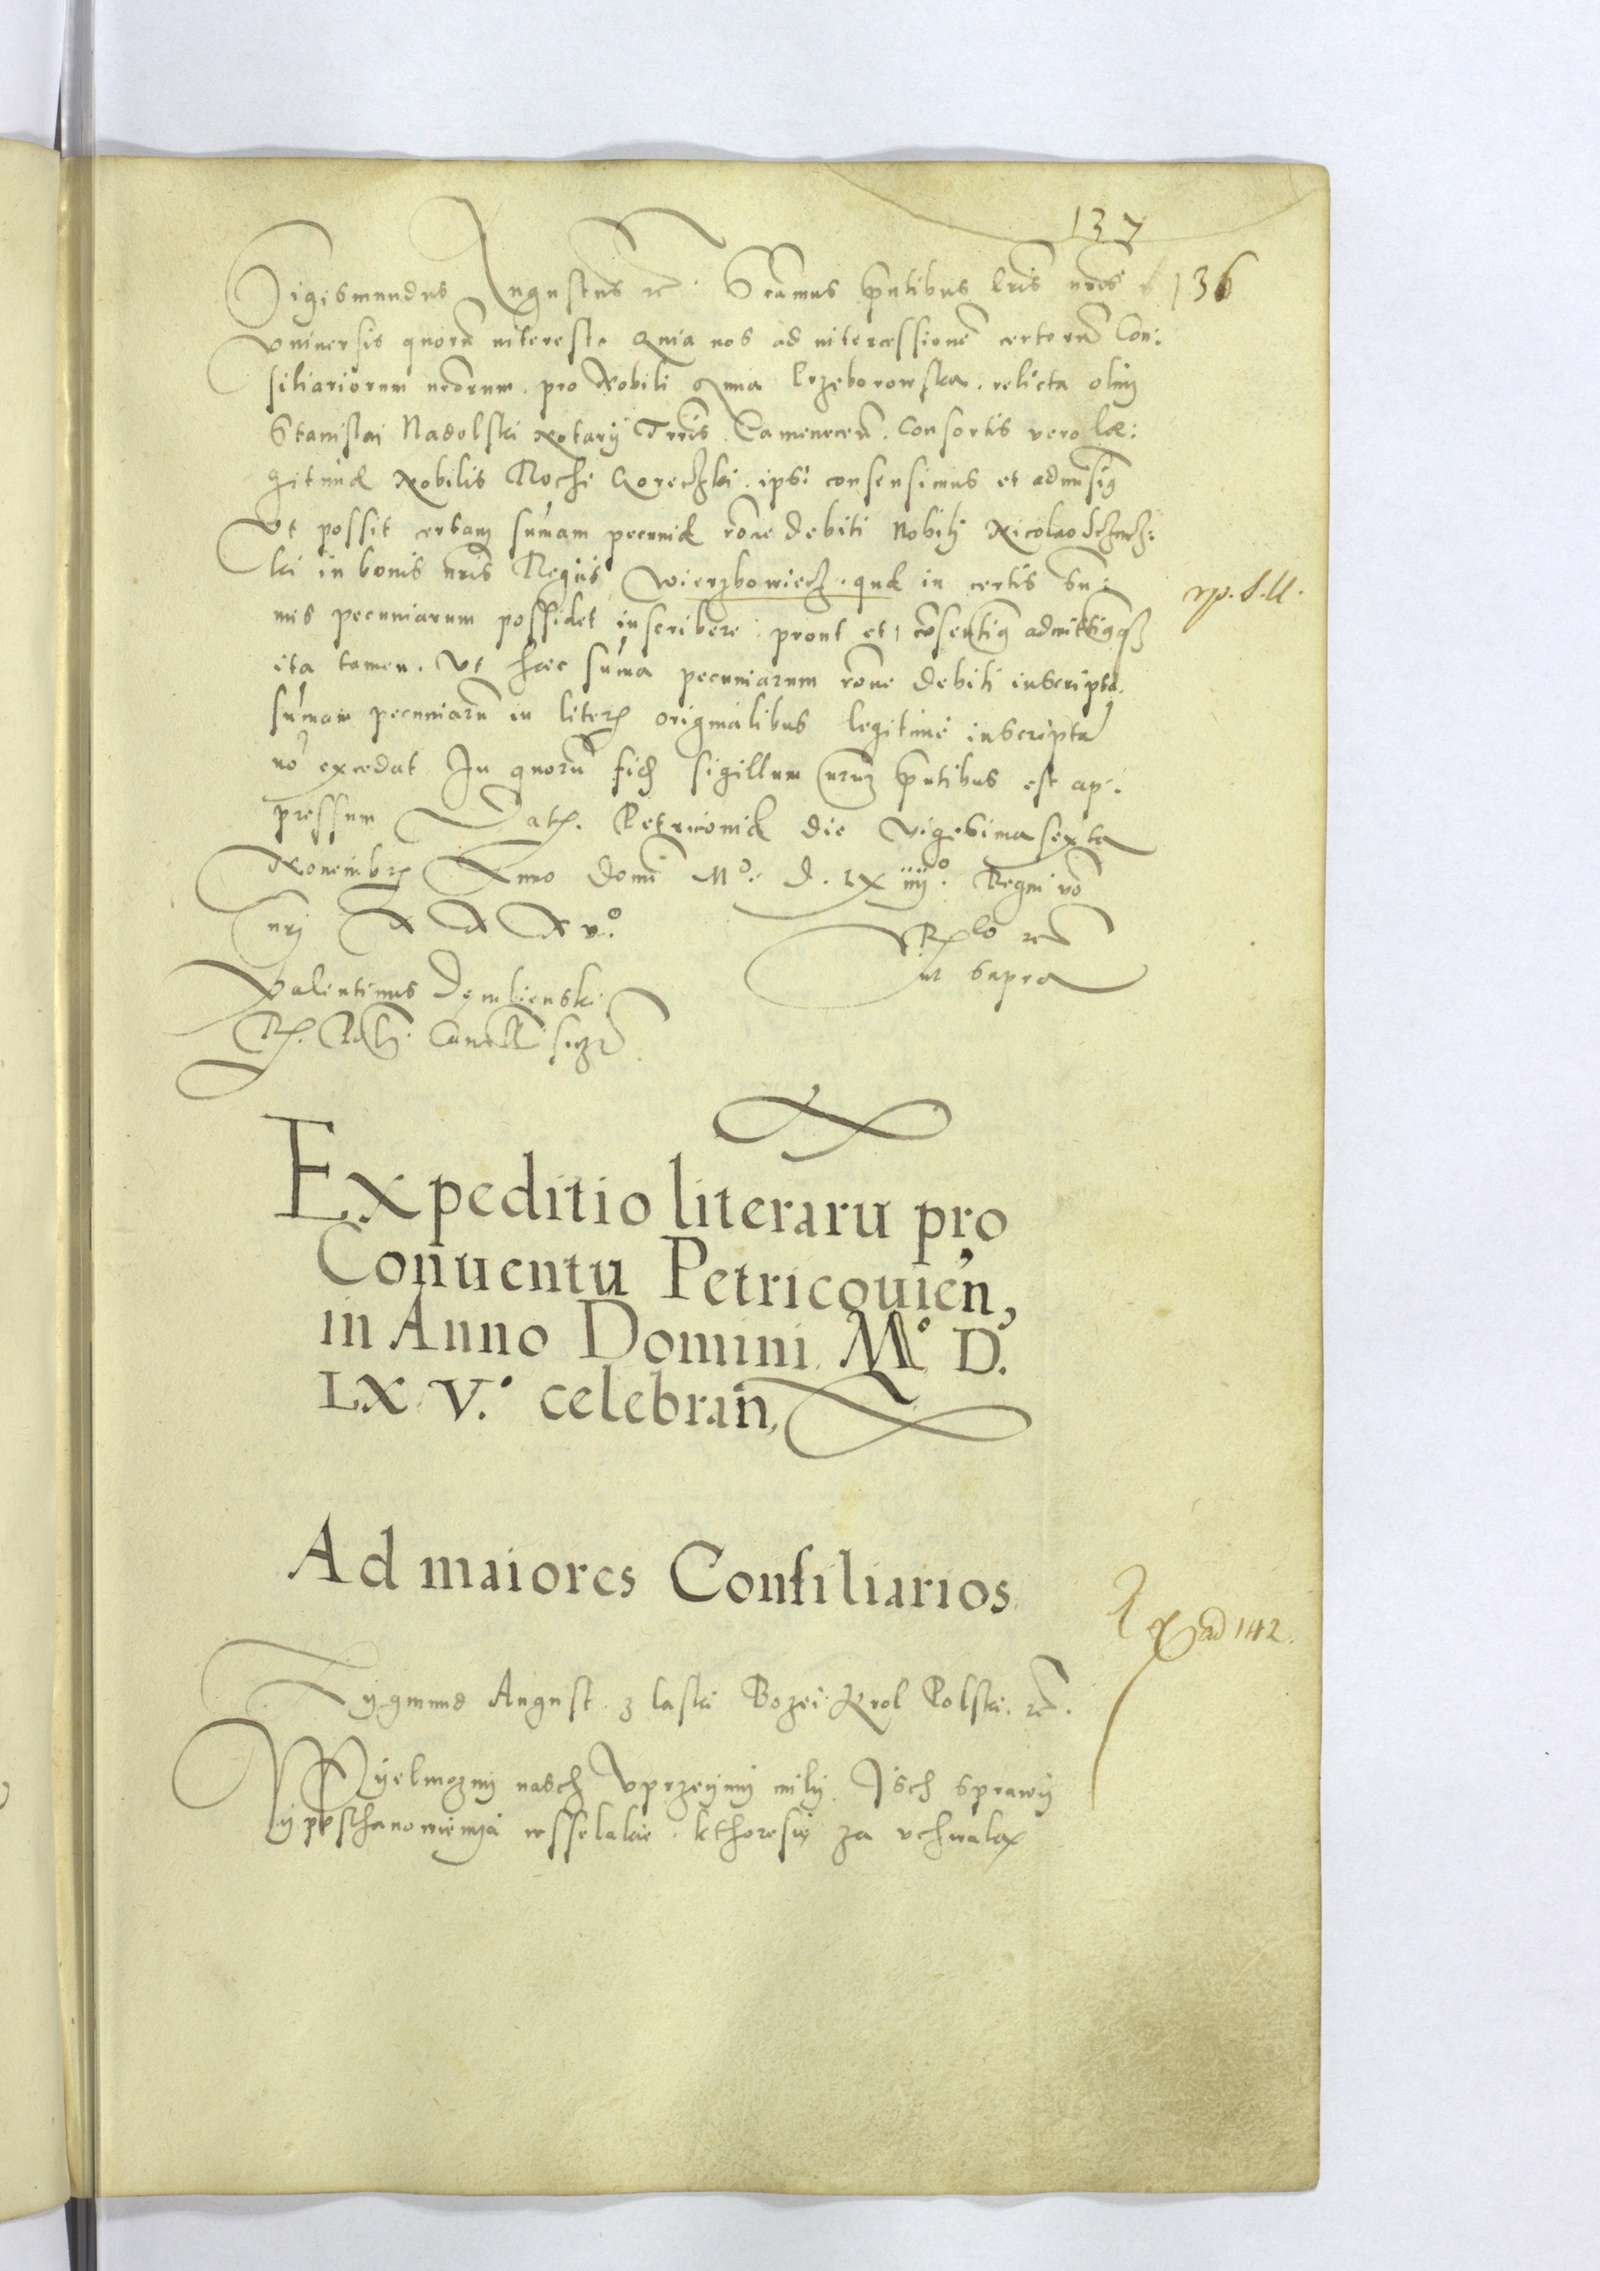 137
136
Sigismundus Augustus rc. Scamus pñtibus lris nris
vniuersis quorũ interest. Quia nos ad intercessionẽ certorũ Con:
siliariorum nrorum. pro Nobili Anna Trzeborowska. relicta olim
Stanislai Nadolski Notarij Trris. Camenecen̄. Consortis vero læ:
gitimæ Nobilis Rochi Koreczki. ipsi consensimus et admisimg
Vt possit certam sum̃am pecuniæ rõne debiti Nobili Nicolao
ki in bonis nris Regijs Wierzbowiecz. quæ in certis Sum:
mis pecuniarum possidet inscribere. prout et consentimg admittimgqȝ
ita tamen. Vt hæc sum̃a pecuniarum rõne debiti inscripta.
sum̃am pecuniarũ in literis originalibus legitime inscriptã
nõ excedat. In quorũ fidẽ sigillum nrum pñtibus est ap:
pressum Dat. Petricouiæ die Vigesima sexta
Nouembris Anno Domi M°. D. LXiiij°. Regni võ
nrj XXXV.°
Rlo rc
ut supra
Valentinus Dembienski
R. Poln̄. Cancell. sszt
Expeditio literarũ pro
Conuentu Petricouien̄,
in Anno Domini M.° D.
LX V.° celebran̄,
Ad maiores Consiliarios
ad 142.
Zygmund August. z laski Bozei Krol Polski. rc.
Wyelmozny nasch Vprzeymy mily. Isch sprawy
y posthanowienia wsselakie. kthoresie za vchwalą